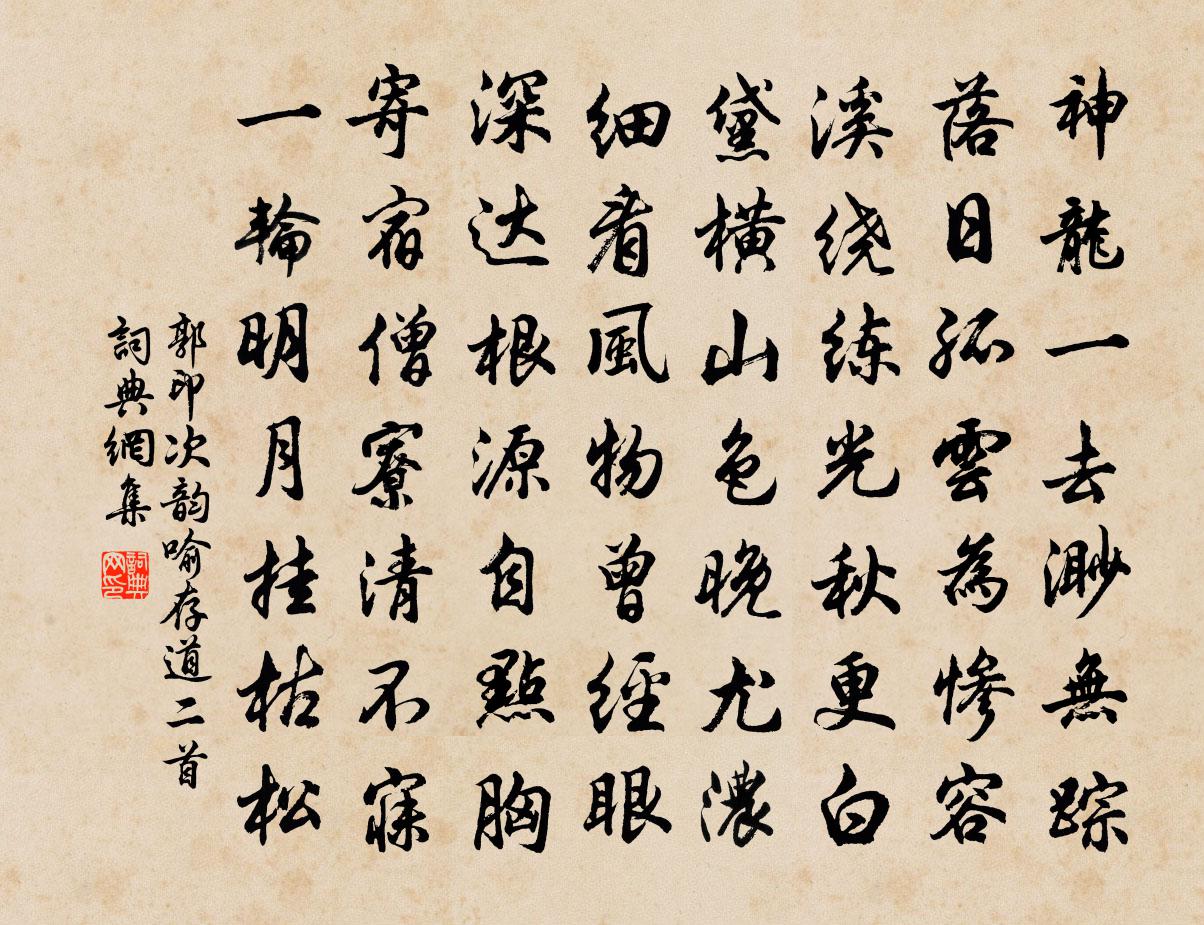 神龍一去渺無踪
落日孤雲為慘容
溪绕练光秋更白
黛橫山色晚尤濃
细看風物曾經眼
深达根源自點胸
寄宿僧寮清不寐
一輪明月挂枯松
郭印次韵喻存道二首
詞典網集
詞典网印